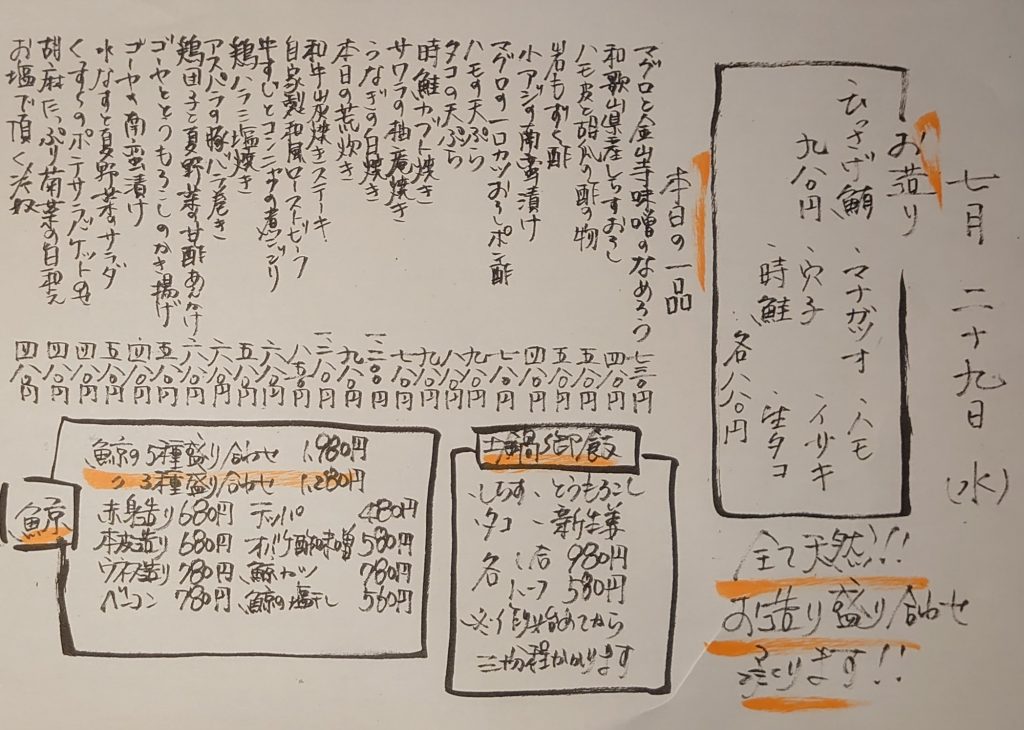 七月二十九日(水)
お造り
ひっさげ鮪 九八〇円
マナガツオ
ハモ
穴子
イサキ
時鮭
生タコ
各八八〇円
全て天然!!
お造り盛り合わせ
承ります!!
本日の一品
マグロと金山寺味噌のなめろう 七三〇円
和歌山県産しらすおろし 四八〇円
ハモ皮と胡瓜の酢の物 五八〇円
岩もずく酢 五八〇円
小アジの南蛮漬け 四八〇円
マグロの一口カツおろしポン酢 七八〇円
ハモの天ぷら 九八〇円
タコの天ぷら 八八〇円
時鮭カブト焼き 九八〇円
サワラの柚庵焼き 七八〇円
うなぎの白焼き 一、二〇〇円
本日の荒炊き 九八〇円
和牛炭焼きステーキ 一、二八〇円
自家製和風ローストビーフ 八七〇円
牛すじとコンニャクの煮こごり 六八〇円
鶏ハラミ塩焼き 五八〇円
アスパラの豚バラ巻き 六八〇円
鶏団子と夏野菜の甘酢あんかけ 六八〇円
ゴーヤととうもろこしのかき揚げ 五八〇円
ゴーヤの南蛮漬け 四八〇円
水なすと夏野菜のサラダ 五八〇円
くずし的ポテサラバケット 四八〇円
胡麻たっぷり菊菜の白和え 四八〇円
お塩で頂く冷奴 四八〇円
土鍋御飯
・しらす ・とうもろこし
・タコ ・新生姜
各 一合 980円
ハーフ 580円
※ 始めてから
三十分程かかります
鯨
鯨の5種盛り合わせ 1,980円
〃 3種盛り合わせ 1,280円
赤身造り 680円 テッパ 480円
本皮造り 680円 オバケ酢味噌 580円
ウネ造り 780円 鯨カツ 780円
ベーコン 780円 鯨の塩干し 560円